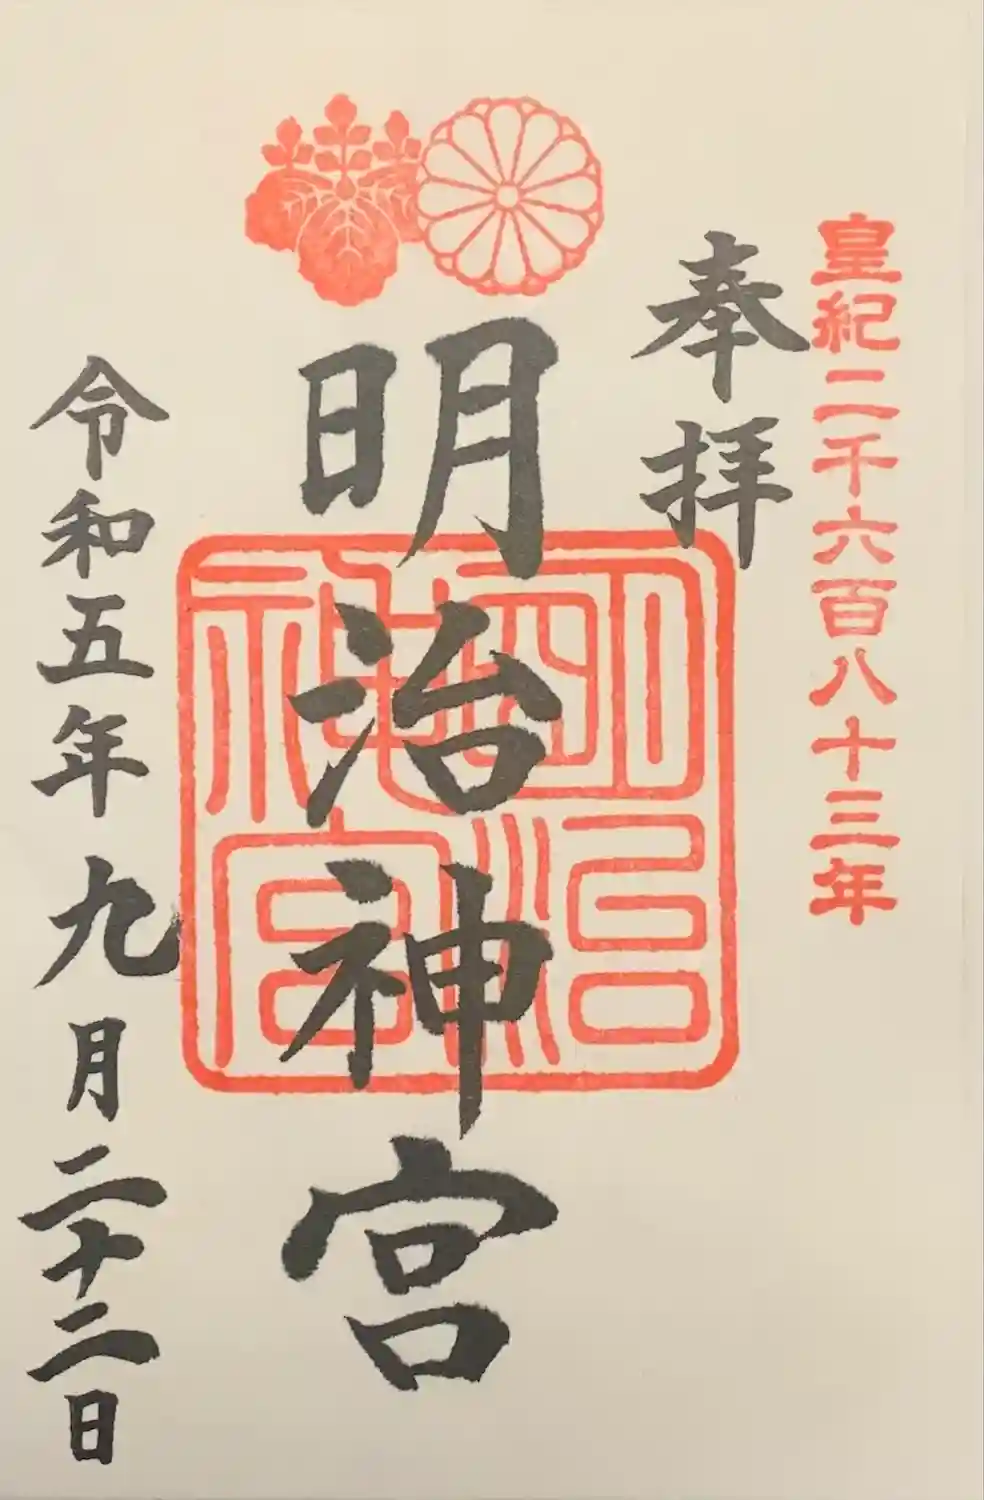 皇紀二千六百八十三年
奉拝
明治神宮
明治神宮
令和五年九月二十二日